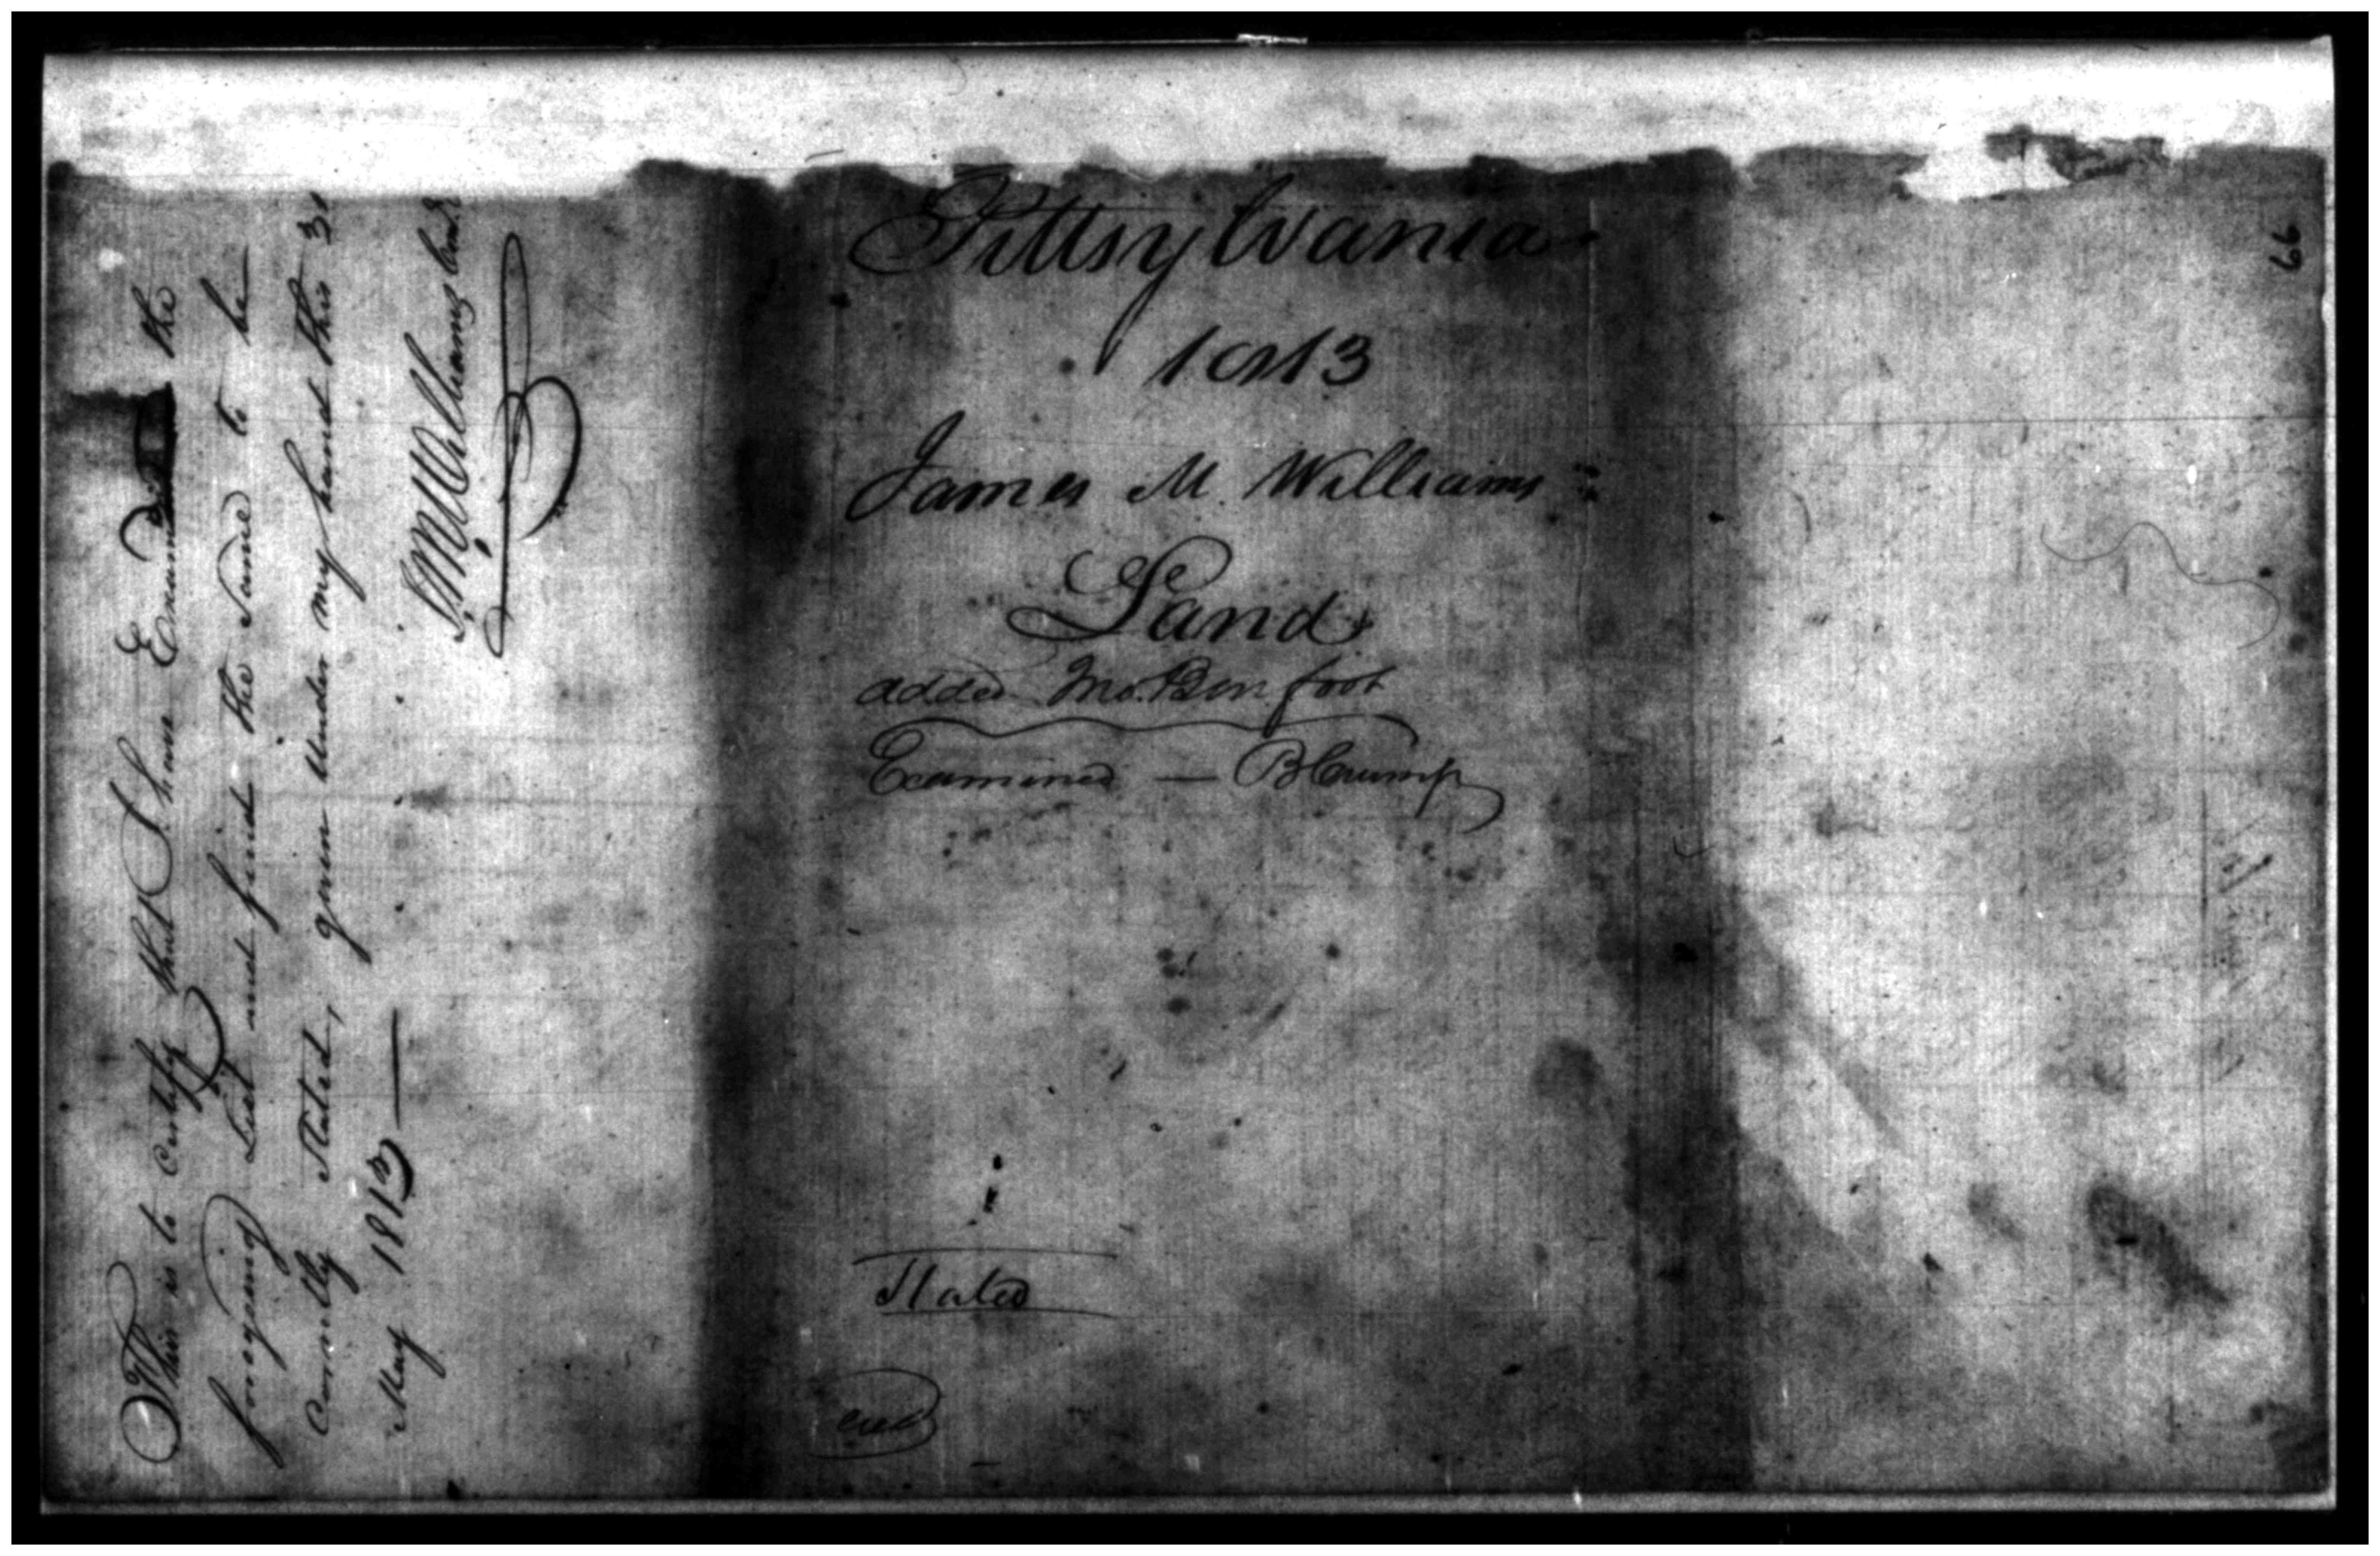 This is to Certify that I have Examined the
foregoing List and find the Same to be
Correctly Stated, given under my hand this 31
May 1813
J. M. Williams Comr
Pittsylvania
1813
James M. Williams
Land
added Jno. Benfoot
Examined — B Crump
Stated
end
99